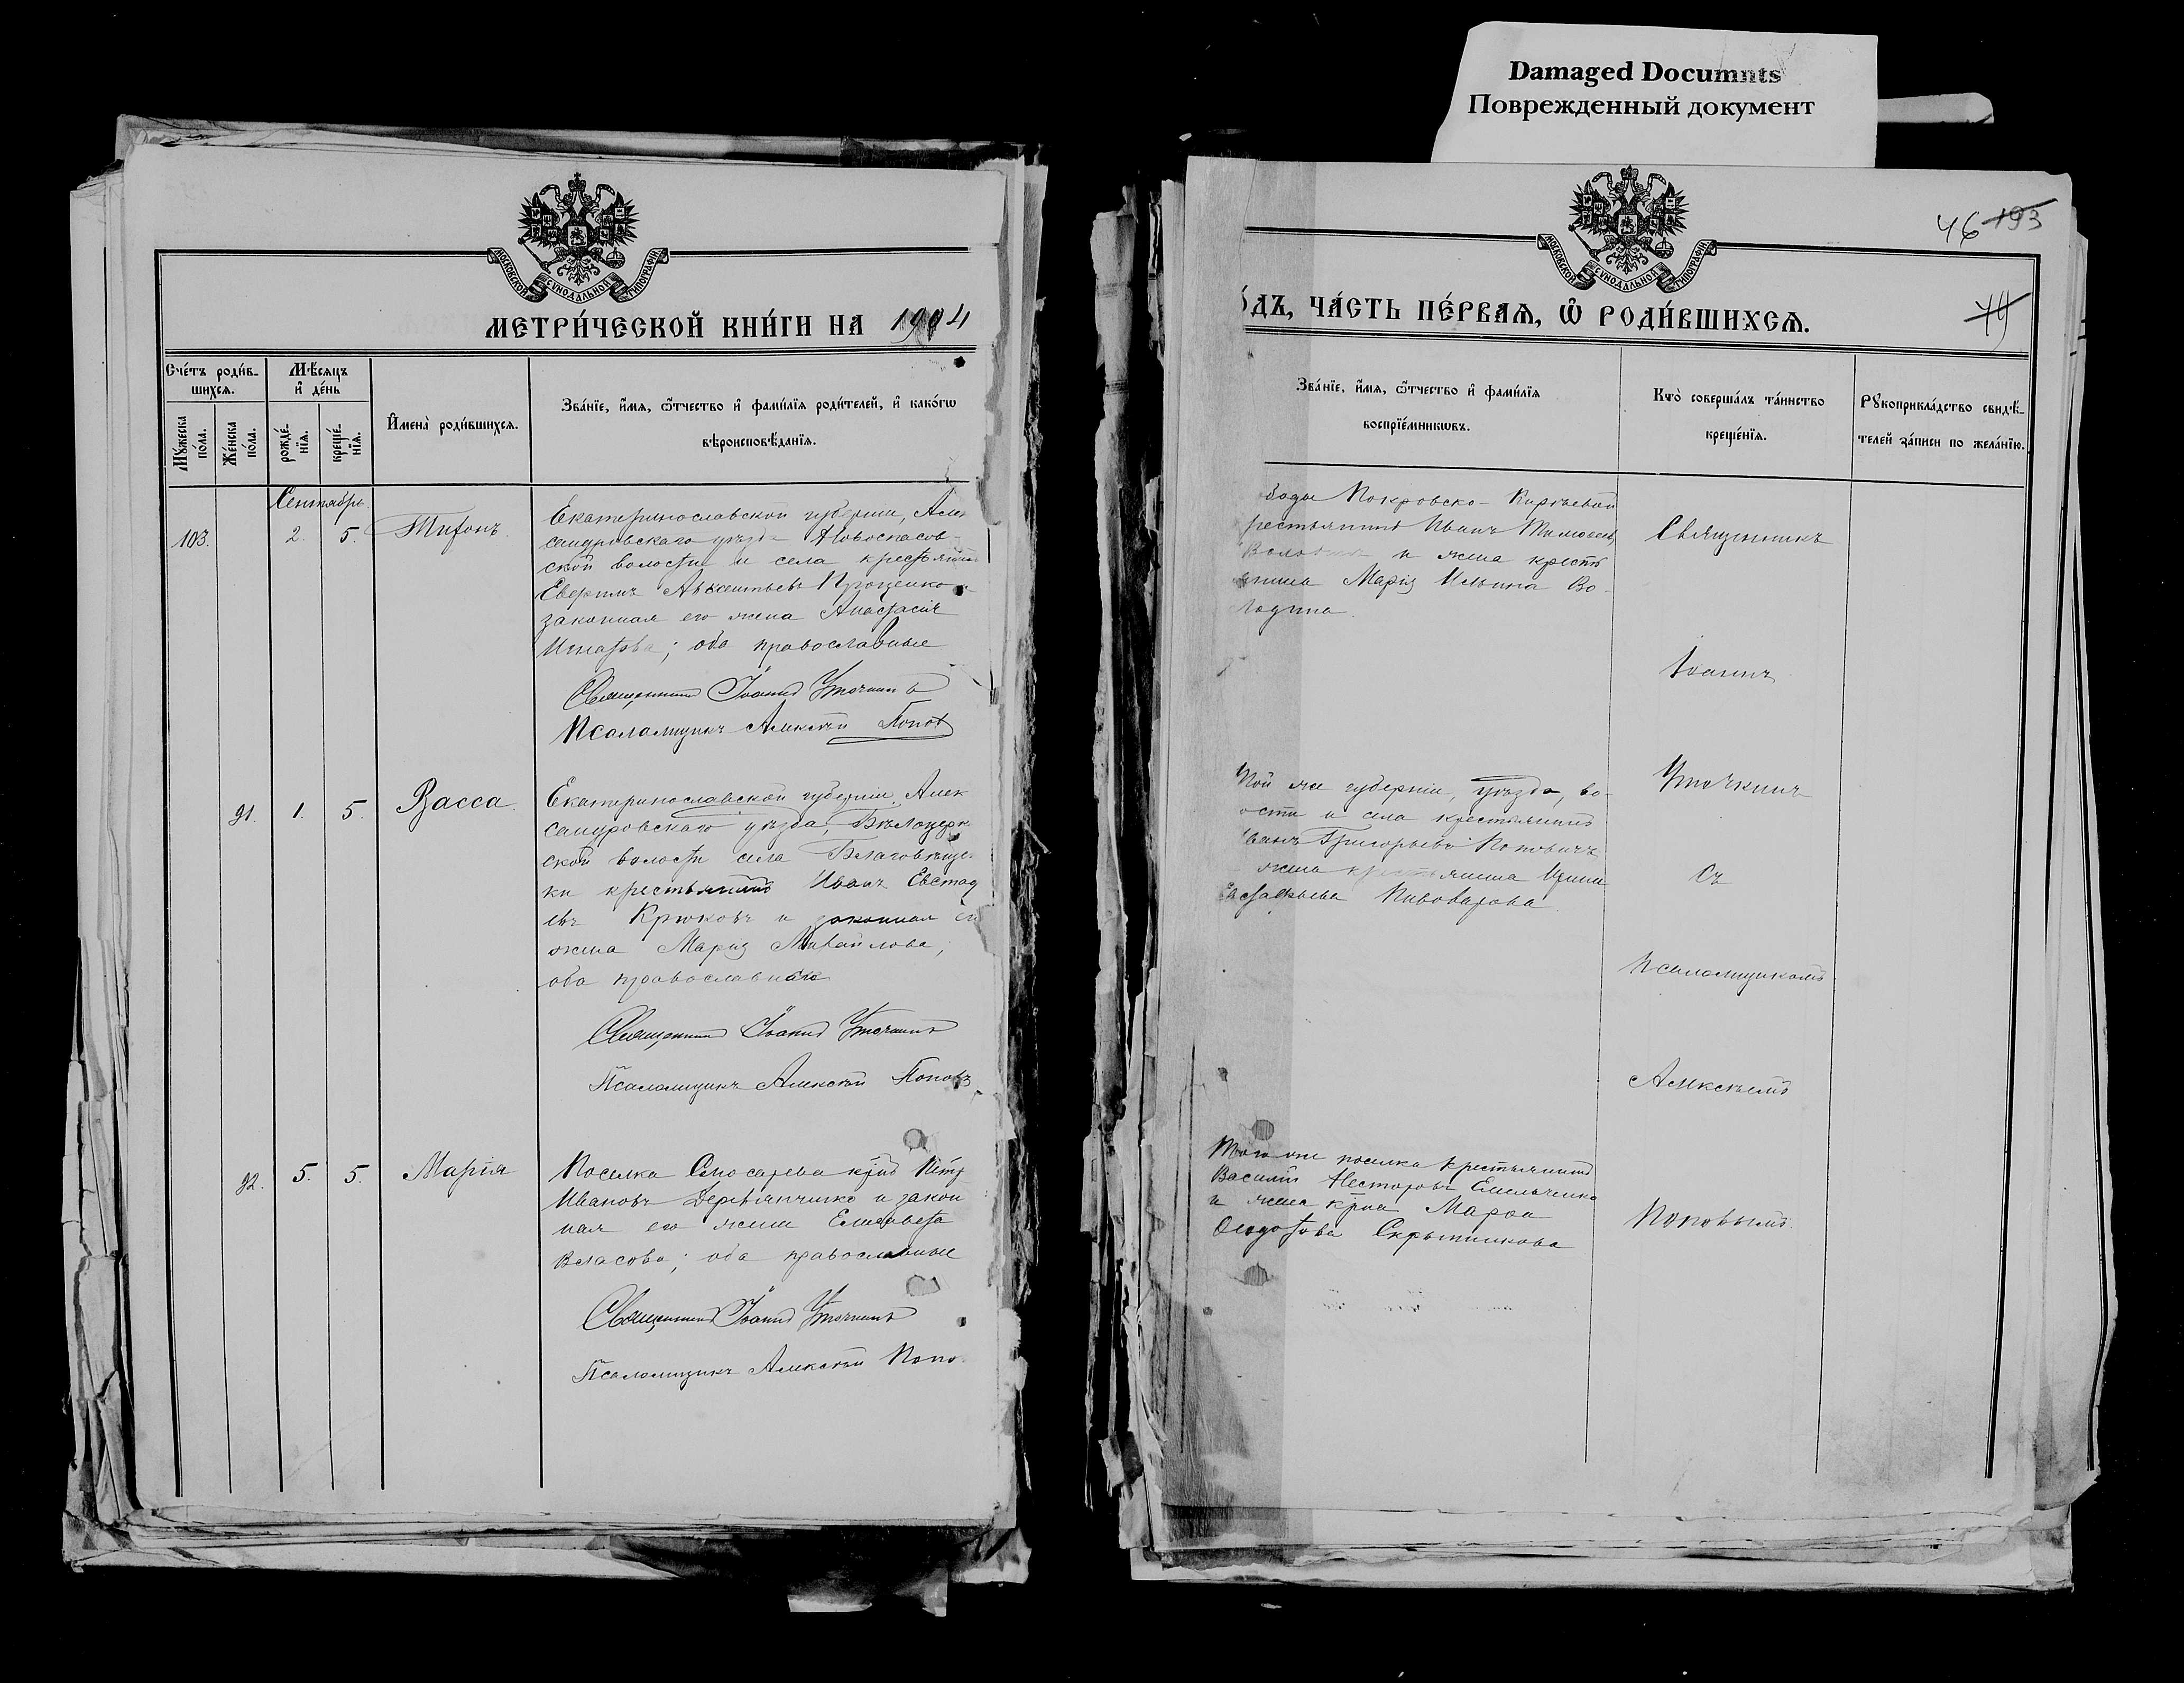 Damaged Documnts
Поврежденный документ
МОСКОВСКОЙ СѴНОДАЛЬНОЙ ТИПОГРАФІИ
МЕТРИ́ЧЕСКОЙ КНИ́ГИ НА 1904
Сче́тъ роди́в-
шихся.
Мѣ́сяцъ
и҆ де́нь
Мꙋ́жеска
по́ла.
Же́нска
по́ла.
рожде́-
нїѧ.
креще́-
нїѧ.
И҆мена̀ роди́вшихсѧ.
Зва́нїе, и҆́мѧ, ѻ҆́тчество и҆ фами́лїѧ роди́телей, и҆ како́гѡ
вѣроисповѣ́данїѧ.
Сентябрь
103.
2.
5.
Тихонъ
Екатеринославской губерніи, Алек
сандровскаго уѣзда Новоспасов-
ской волости и села крестьянинъ
законная его жена Анастасія
Игнатова; оба православные
Священникъ Іоаннъ Уточкинъ
Псаломщикъ Алексѣй Попов
91.
1.
5.
Васса
Екатеринославской губерніи, Алек
сандровскаго уѣзда, Бѣлоцерк
ской волости села Благовѣщен
ки крестьянинъ Иванъ Евстаф
евъ Крюковъ и законная ег
жена Марія Михайлова,
оба православные
Священникъ Іоаннъ Уточкинъ
Псаломщикъ Алексѣй Поповъ
92.
5.
5.
Марія
Поселка крнъ Петр
Ивановъ Деревянченко и закон
ная его жена Елисавета
Власова; оба православные
Священникъ Іоаннъ Уточкинъ
Псаломщикъ Алексѣй Попо
46 193
74
МОСКОВСКОЙ СѴНОДАЛЬНОЙ ТИПОГРАФІИ
ОДЪ, ЧА́СТЬ ПЕ́РВАѦ, Ѽ РОДИ́ВШИХСѦ.
Зва́нїе, и҆́мѧ, ѻ҆́тчество и҆ фами́лїѧ
воспрїе́мникѡвъ.
Кто̀ соверша́лъ та́инство
креще́нїѧ.
Рꙋкоприкла́дство свидѣ́-
телей за́писи по жела́нїю.
боды Покровско-Кирѣевой
рестьянинъ Иванъ Тимофеев
Володин и жена крестья
янина Марія Ильина Во-
лодина
Той же губерніи, уѣзда, во-
лости и села крестьянинъ
Иванъ Григорьевъ Поповичъ
жена крестьянина Ирина
Евстафьева Пивоварова
Того же поселка крестьянинъ
Василій Несторовъ Емельченко
и жена крна Марѳа
Ѳедотова Скрынникова
Священникъ
Іоаннъ
Уточкинъ
съ
Псаломщикомъ
Алексѣемъ
Поповымъ.